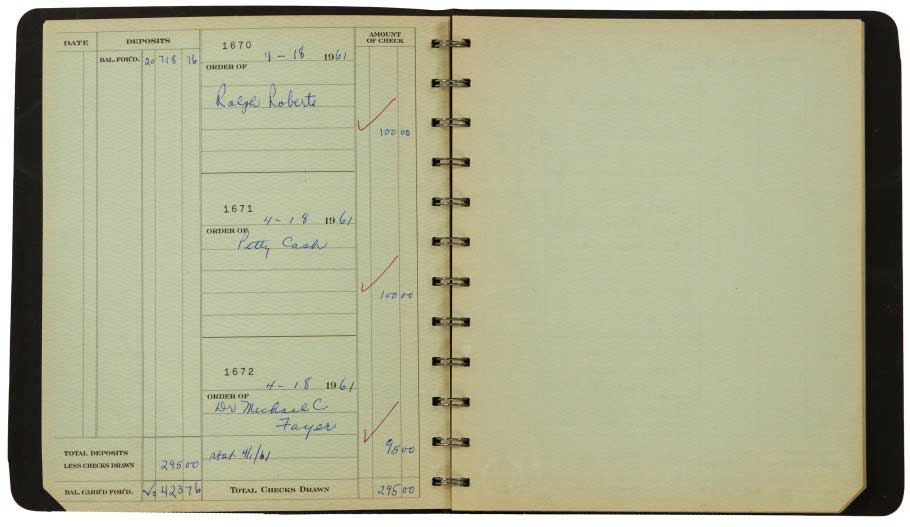 DATE DEPOSITS AMOUNT OF CHECK
BAL. FOR'D. 20 718 76
1670
4-18 1961
ORDER OF
Ralph Roberts
100 00
1671
4-18 1961
ORDER OF
Petty Cash
100 00
1672
4-18 1961
ORDER OF
Dr Michael C
Fayer
95 00
stat 4/1/61
TOTAL DEPOSITS
LESS CHECKS DRAWN 295 00
BAL. CARR'D FOR'D. 423 76
TOTAL CHECKS DRAWN 295 00